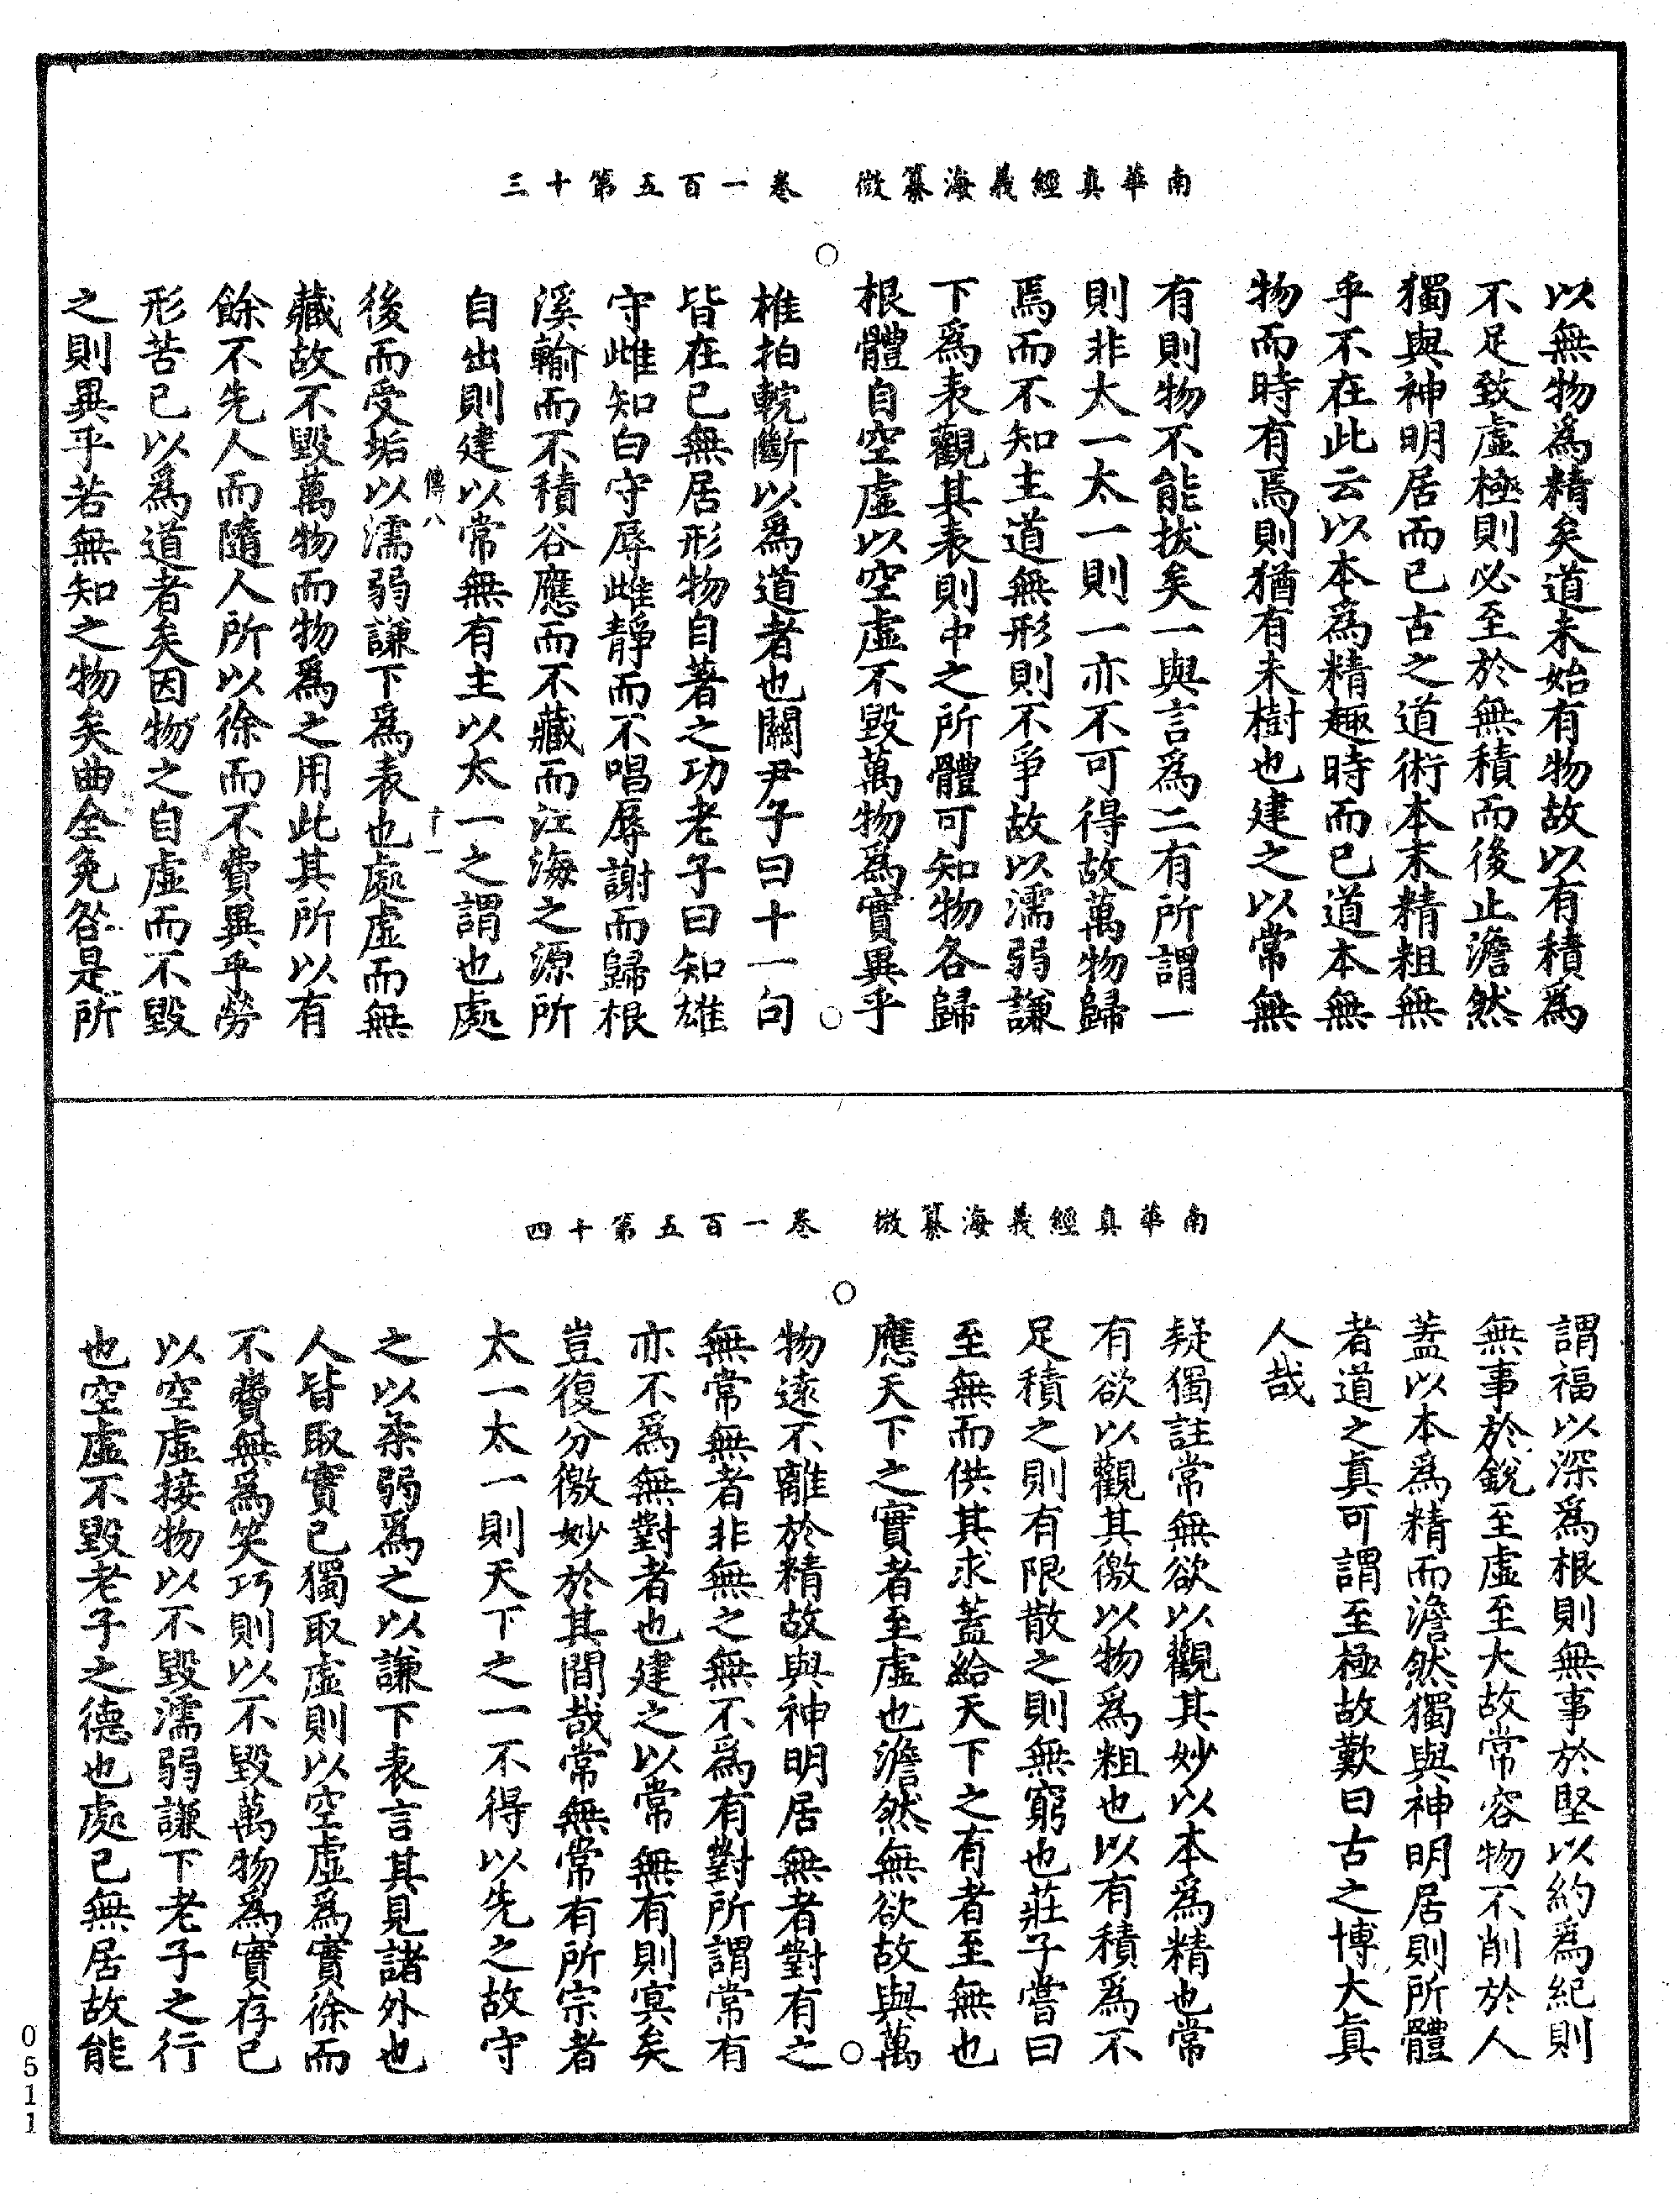 南華真經義海纂微　卷一百五第十三
以無物為精矣道未始有物故以有積爲
不足致虛極則必至於無積而後止澹然
獨與神明居而已古之道術本末精粗無
乎不在此云以本爲精趣時而已道本無
物而時有焉則猶有未樹也建之以常無
有則物不能拔矣一與言爲二有所謂一
則非太一太一則一亦不可得故萬物歸
焉而不知主道無形則不爭故以濡弱謙
下爲表觀其表則中之所體可知物各歸
根體自空虛以空虛不毀萬物爲實異乎
椎拍輐斷以爲道者也關尹子曰十一句
皆在已無居形物自著之功老子曰知雄
守雌知白守辱雌靜而不唱辱謝而歸根
溪輸而不積谷應而不藏而江海之源所
自出則建以常無有主以太一之謂也處
傅八　十一
後而受垢以濡弱謙下爲表也處虛而無
藏故不毀萬物而物爲之用此其所以有
餘不先人而隨人所以徐而不費異乎勞
形苦已以爲道者矣因物之自虛而不毀
之則異乎若無知之物矣曲全免咎是所
南華真經義海纂微　卷一百五第十四
謂福以深爲根則無事於堅以約爲紀則
無事於銳至虛至大故常容物不削於人
蓋以本爲精而澹然獨與神明居則所體
者道之真可謂至極故歎曰古之博大真
人哉
疑獨註常無欲以觀其妙以本爲精也常
有欲以觀其徼以物爲粗也以有積爲不
足積之則有限散之則無窮也莊子嘗曰
至無而供其求蓋給天下之有者至無也
應天下之實者至虛也澹然無欲故與萬
物遠不離於精故與神明居無者對有之
無常無者非無之無不爲有對所謂常有
亦不爲無對者也建之以常無有則冥矣
豈復分徼妙於其間哉常無常有所宗者
太一太一則天下之一不得以先之故守
之以柔弱爲之以謙下表言其見諸外也
人皆取實已獨取虛則以空虛爲實徐而
不費無爲笑巧則以不毀萬物爲實存已
以空虛接物以不毀濡弱謙下老子之行
也空虛不毀老子之德也處已無居故能
0511